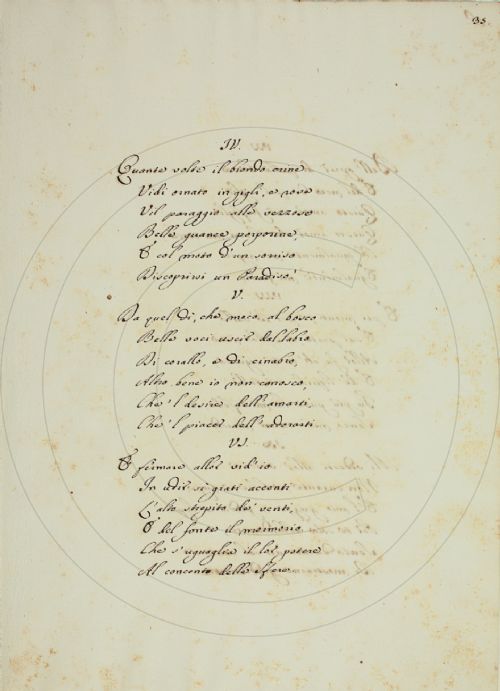 35
IV.
Quante volte il biondo crine
Vidi ornato in gigli, e rose
Vil paraggio alle vezzose
Belle guance porporine,
E col moto d'un sorriso
Discoprirvi un Paradiso!
V.
Da quel dì, che meco al bosco
Belle voci uscil dal labro
Di corallo, e di cinabro,
Altro bene io non conosco,
Che 'l desire dell' amarti,
Che 'l piacer dell' adorarti.
VI.
E fermare allor vid' io
In udir sì grati accenti
L'alto strepito de' venti,
E del fonte il mormorio
Che s'uguaglia il lor potere
Al concento delle Sfere.